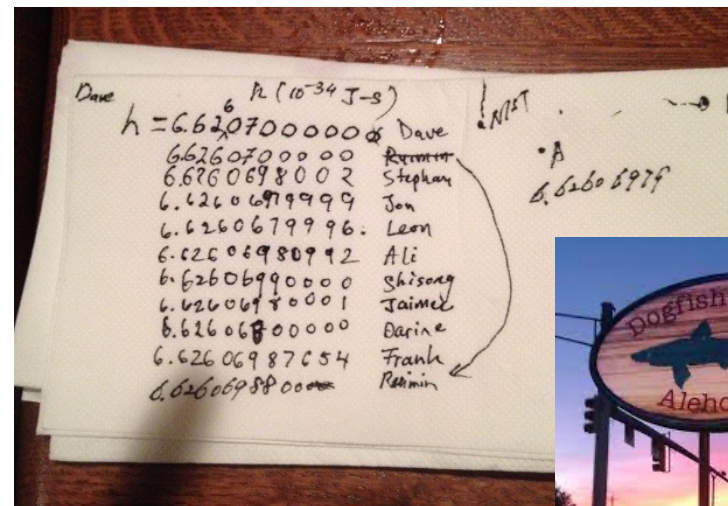 Dave
h (10⁻³⁴ J-s)
h = 6.6260700000 Dave
6.6260700000 Ruimin
6.6260698002 Stephan
6.6260697999 Jon
6.6260679996. Leon
6.6260698099 2 Ali
6.62606990000 Shisong
6.62606980001 Jaimee
6.62606800000 Darine
6.62606987654 Frank
6.6260698800 Ruimin
NIST
• A
6.62606979
Dogfish
Aleho